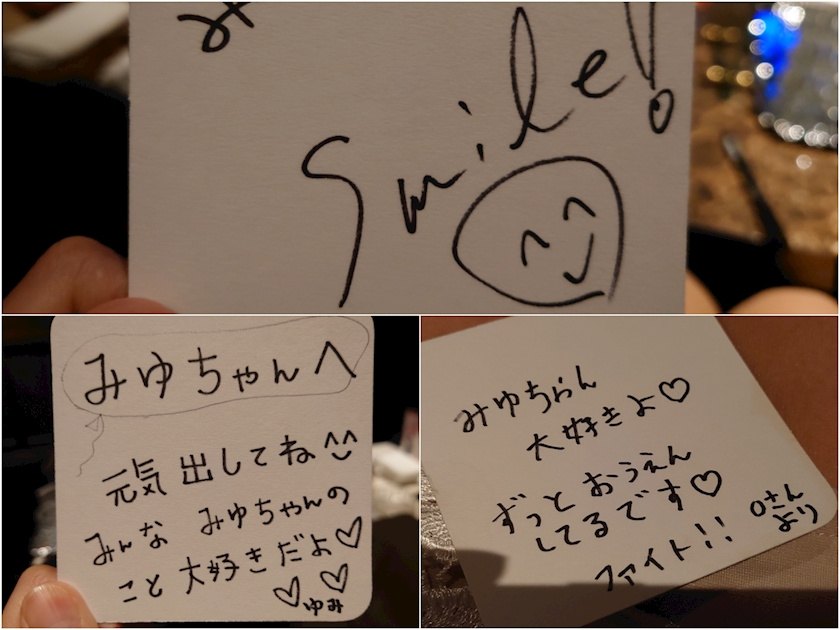 み
Smile!
みゆちゃんへ
元気出してね^^
みんな みゆちゃんの
こと 大好きだよ♡
♡♡ゆみ
みゆちゃん
大好きよ♡
ずっとおうえん
してるです♡
ファイト!!
Oさん
より